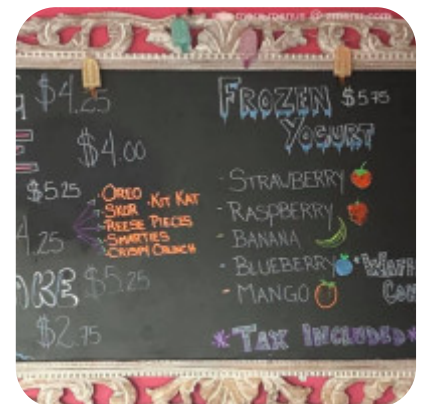 G $4.25
E $4.00
$5.25
- OREO - KIT KAT
- SKOR
- REESE PIECES
- SMARTIES
- CRISPY CRUNCH
4.25
AKE $5.25
$2.75
FROZEN $5.75
YOGURT
- STRAWBERRY
- RASPBERRY
- BANANA
- BLUEBERRY
- MANGO
* TAX INCLUDED *